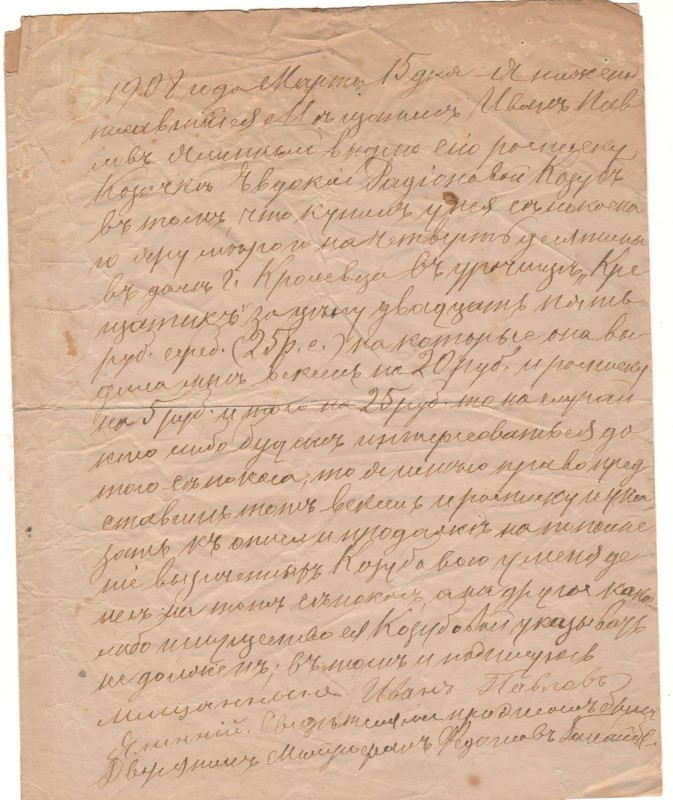 1908 года Марта 15 дня Я нижепод
писавшiйся Мѣщанинъ Иванъ Пав
ловъ Ялинный выдаю сiю росписку
Козачкѣ Евдокiи Радiоновой Козубъ
въ томъ, что купилъ у нея сѣнокосна
го на четверть десятины
въ дачѣ г. Кролевца въ урочищѣ „Кре
щатикъ" за цѣну двадцать пять
руб. сереб. (25 р. с.) на которые она вы
дала мнѣ вексель на 20 руб. и росписку
на 5 руб. итого на 25 руб. то на случай
кто либо будетъ интересоваться до
того сѣнокоса, то я имѣю право пред
ставить тотъ вексель и росписку и ука
зать къ описи и продажѣ на пополне
нiе Козубовою у меня де
негъ на тотъ сѣнокосъ, а на другое какое
либо имущество ея Козубовой указывать
не долженъ; въ томъ и подпишусь
мѣщанинъ Иванъ Павловъ
Ялинный. Свидѣтелями при томъ были
Дворянинъ Митрофанъ Федоровъ